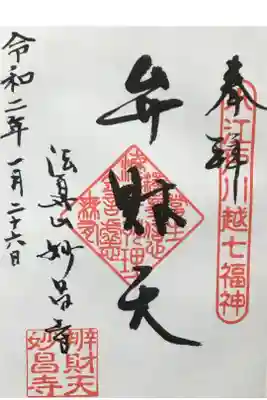 奉拝
小江戸川越七福神
弁財天
法眞山妙昌寺
令和二年一月二十六日
辨財天
妙昌寺